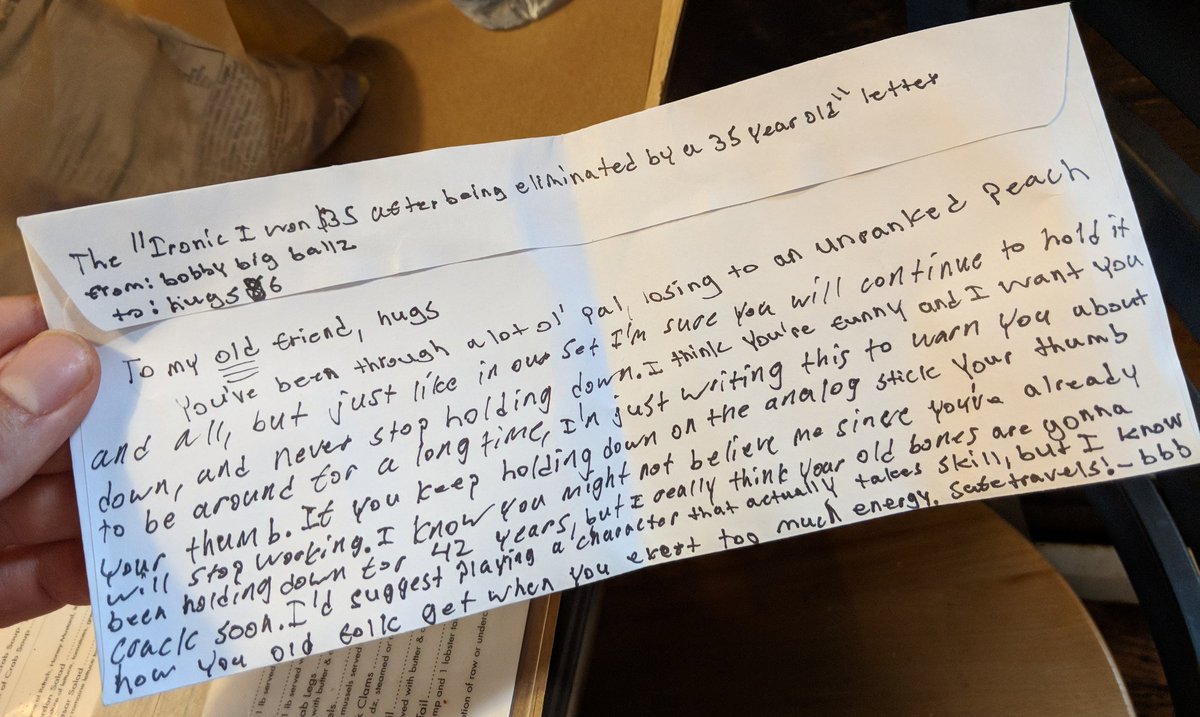 The "Ironic I won $35 after being eliminated by a 35 year old" letter
from: bobby big ballz
to: hugs 6
To my old friend, hugs
You've been through a lot ol' pal, losing to an unranked peach
and all, but just like in our set I'm sure you will continue to hold it
down, and never stop holding down. I think you're funny and I want you
to be around for a long time, I'm just writing this to warn you about
your thumb. If you keep holding down on the analog stick your thumb
will stop working. I know you might not believe me since you've already
been holding down for 42 years, but I really think your old bones are gonna
crack soon. I'd suggest playing a character that actually takes skill, but I know
how you old folk get when you exert too much energy. Safe travels! - bbb
of Crab Soup
Salad
sar Salad
1 lb served
with butter &
ab Legs
mussels served
Clams
dz, steamed or
served with butter &
Tail
mp and 1 lobster
tion of raw or underc